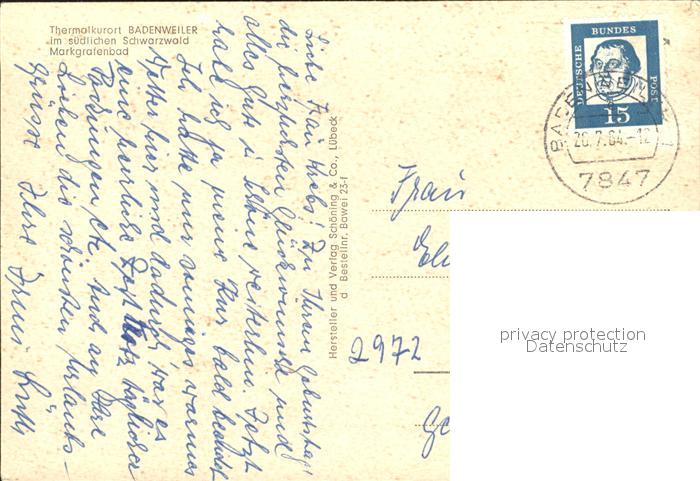 Thermalkurort BADENWEILER
im südlichen Schwarzwald
Markgrafenbad
Liebe Frau Krebs! Zu Ihrem Geburtstag
die herzlichsten Glückwünsche und
alles Gute im Leben weiterhin. Jetzt
habe ich ja meine Kur bald beendet
Ich hatte nur sonniges warmes
Wetter hier und dadurch war es
eine herrliche Zeit trotz täglicher
Badungen etc. Und an Ihre
Lieben die schönsten Urlaubs-
grüsse Ihre
Hersteller und Verlag Schöning & Co., Lübeck
d Bestellnr. Bawei 23-f
DEUTSCHE
BUNDES
POST
15
BADENWEILER
26.7.64.-12
7847
Frau
2972
privacy protection
Datenschutz